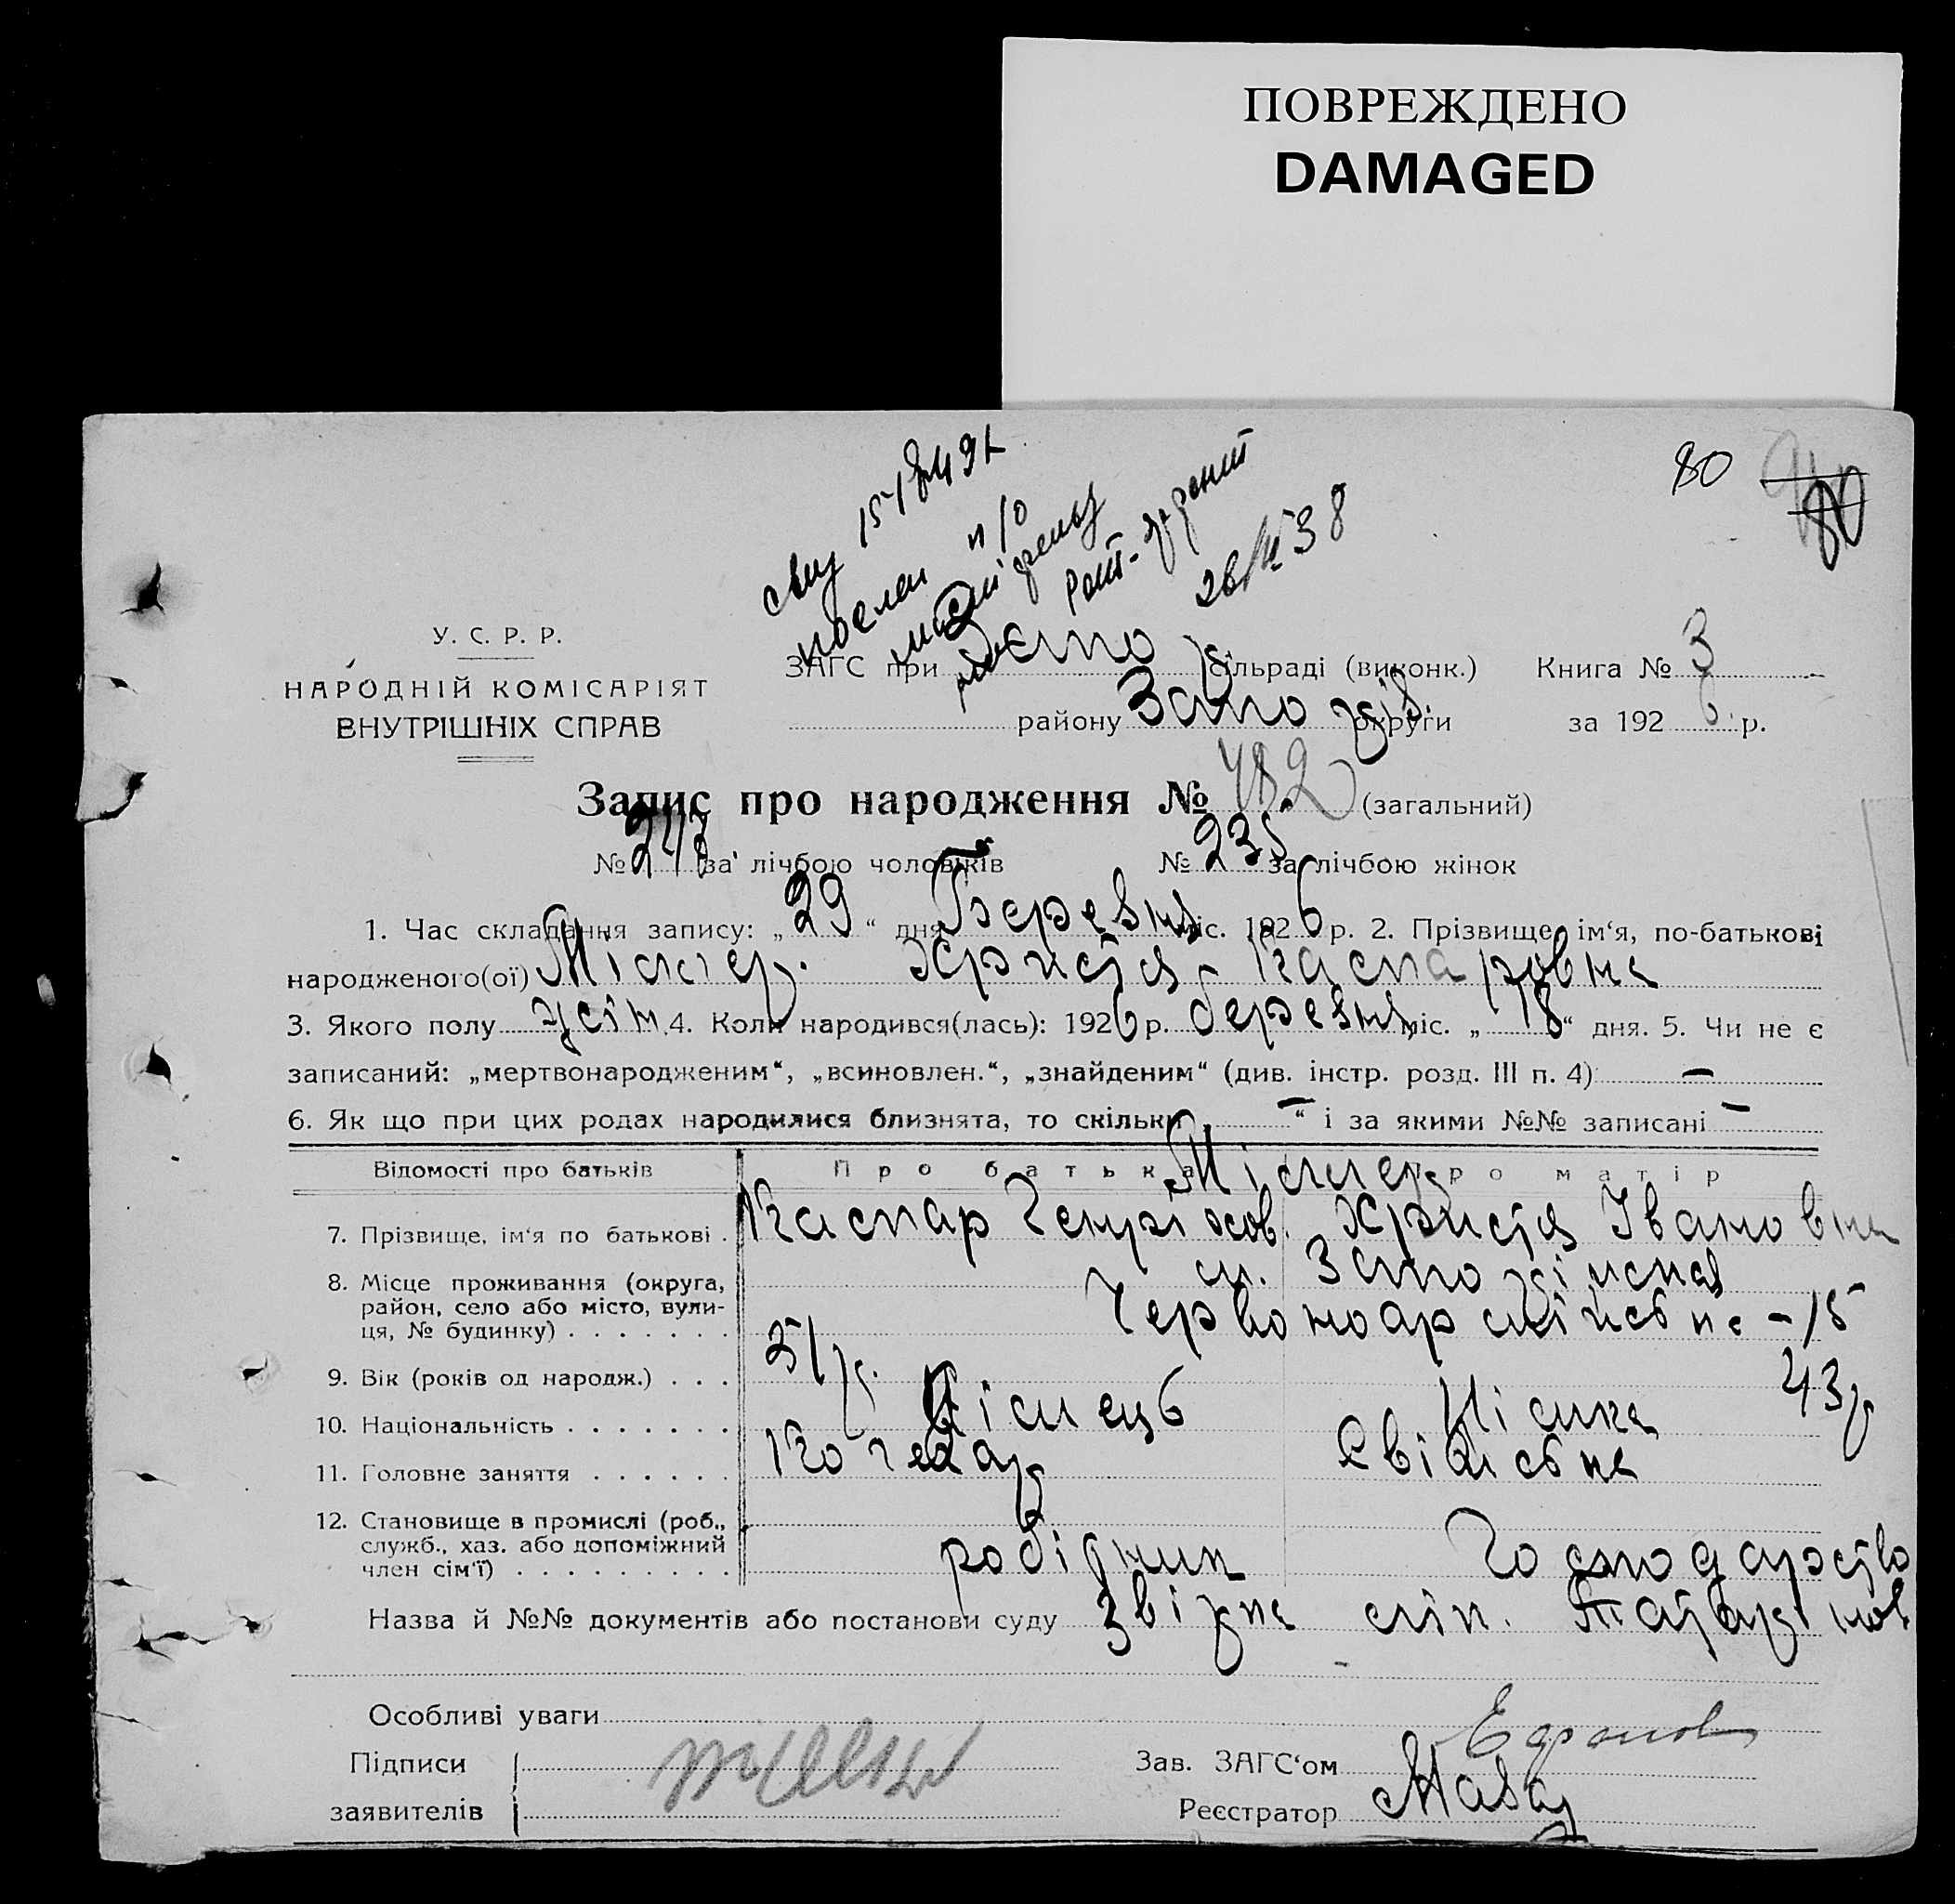 ПОВРЕЖДЕНО
DAMAGED
80
80
26/ 38
У. С. Р. Р.
НАРОДНІЙ КОМІСАРІЯТ
ВНУТРІШНІХ СПРАВ
ЗАГС при сільраді (виконк.) Книга № 3
району Запоріз. округи за 1926 р.
Запис про народження № 482 (загальний)
№ за лічбою чоловіків № 235 за лічбою жінок
1. Час складання запису: „29“ дня Березня міс. 1926 р. 2. Прізвище, ім‘я, по-батькові
народженого(ої) Христя Каспаровна
3. Якого полу жін. 4. Коли народився(лась): 1926 р. березня міс. „18“ дня. 5. Чи не є
записаний: „мертвонародженим“, „всиновлен.“, „знайденим“ (див. інстр. розд. III п. 4) —
6. Як що при цих родах народилися близнята, то скільки — “ і за якими №№ записані —
Відомості про батьків Про батька Про матір
7. Прізвище, ім‘я по батькові . Каспар Генріхов. Христя Івановна
8. Місце проживання (округа, м. Запоріжжя
район, село або місто, вули- Червоноармійська - 15
ця, № будинку) . . . . . . .
9. Вік (років од народж.) . . . 51 р. 43 р
10. Національність . . . . . . . Німець Німка
11. Головне заняття . . . . . . Кочегар
12. Становище в промислі (роб.,
служб., хаз. або допоміжний робідник Господарство
член сім‘ї) . . . . . . . . . .
Назва й №№ документів або постанови суду
Особливі уваги
Підписи Зав. ЗАГС‘ом
заявителів Реєстратор